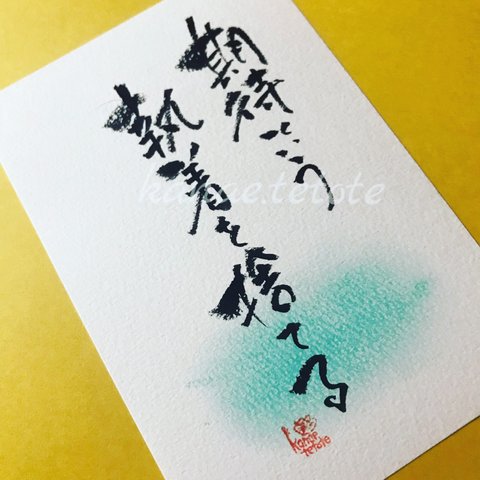 期待という
執着を捨てる
kanae.tetote
kanae
tetote